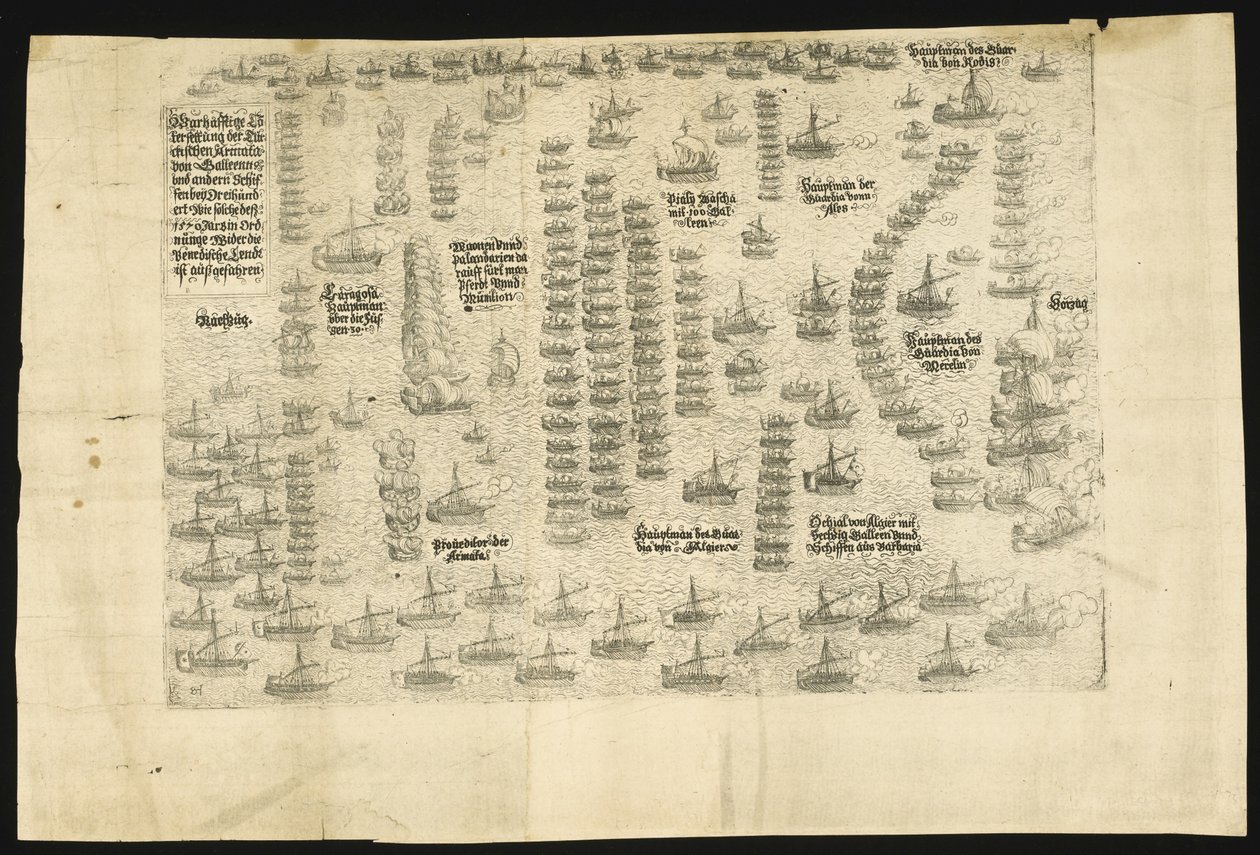 Warhafftige Cō
terfettung der Tür
ckischen Armata
von Galleenn
vnd andern Schif
fen bey Dreihund
ert Wie solche deß
1570 Jars in Ord
nunge Wider die
Venedische Lendt
ist außgefahren
Nachzug.
Caragosa
Hauptman
vber die Fus
ten 30.
Maonen vnnd
Palandarien da
rauff fürt man
Pferdt Vnnd
Munition
Proueditor der
Armata.
Hauptman des Guar
dia von Rodis
Hauptman der
Guardia vonn
Pialy Bascha
mit 100 Gal
leen
Hauptman des
Guardia von
Vorzug
Hauptman des Guar
dia von Algier
Ochial von Algier mit
Sechzig Galleen vnnd
Schiffen aus Barbaria